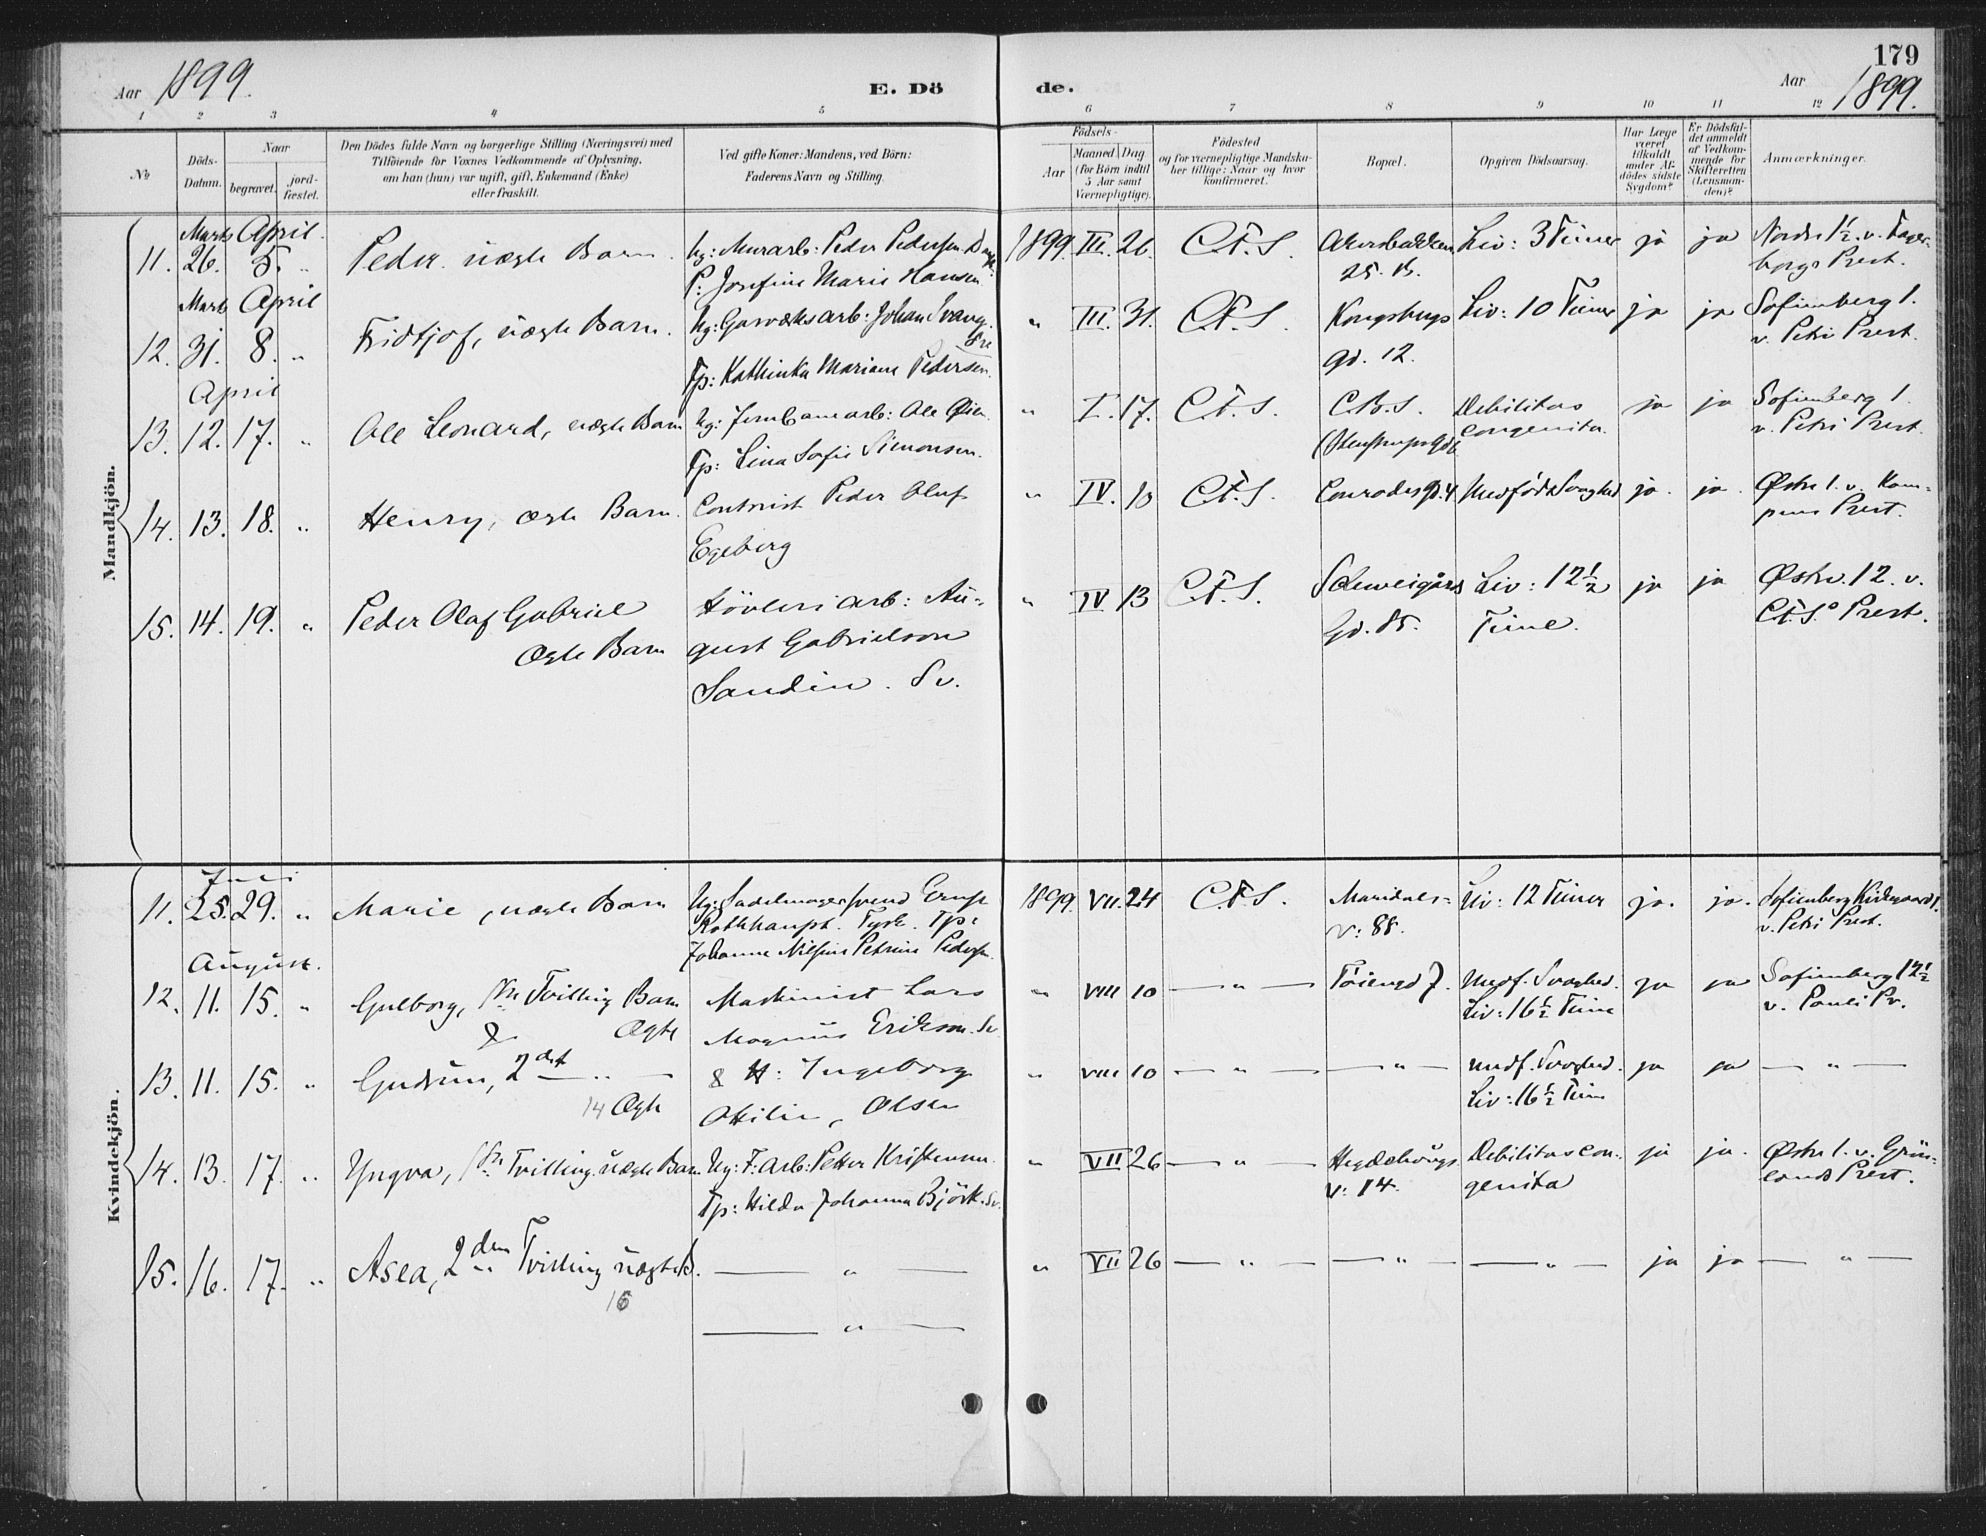 179
Aar 1899.
E. Dö de.
Aar 1899.
1 2 3 4 5 6 7 8 9 10 11 12
No
Döds-Datum.
Naar
begravet.
jord-fæstet.
Den Dödes fulde Navn og borgerlige Stilling (Næringsvei) med
Tilföiende for Voxnes Vedkommende af Oplysning,
om han (hun) var ugift, gift, Enkemand (Enke)
eller fraskilt.
Ved gifte Koner: Mandens, ved Börn:
Faderens Navn og Stilling.
Födsels-
Aar
Maaned Dag
(for Börn indtil
5 Aar samt
Værnepligtige).
Födested
og for værnepligtige Mandska-
ber tillige: Naar og hvor
konfirmeret.
Bopæl.
Opgiven Dödsaarsag.
Har Læge
været
tilkaldt
under Af-
dödes sidste
Sygdom?
Er Dödsfal-
det anmeldt
af Vedkom-
mende for
Skifteretten
(Lensman-
den)?
Anmærkninger.
Mandkjön.
Marts April
11. 26. 5. " Peder uægte Barn. Ug: Murarb: Peder Pedersen
P: Josefine Marie Hansen
1899 III. 26. C.F.S. Akersbakken 25. B. Liv: 3 Timer ja ja Nordre 1½ v. Fager-
borgs Prest.
Marts April
12. 31. 8. " Fridtjof, uægte Barn. Ug: Gasværksarb: Johan
Tp: Kathinka Mariane Pedersen.
" III. 31. C.F.S. Kongsbergs gd. 12. Liv: 10 Timer ja ja Sofienberg 1.
v. Petri Prest.
April
13. 12. 17. " Ole Leonard, uægte Barn Ug: Jernbanearb: Ole Øien
Tp: Lina Sofie Simonsen.
" I. 17. C.F.S. C.B.S. Debilitas congenita. ja ja Sofienberg 1.
v. Petri Prest.
14. 13. 18. " Henry, ægte Barn. Contorist Peder Oluf
Egeberg
" IV. 10 C.F.S. Conradesgd. 4 Medfødt Svaghed ja. ja. Østre 1. v. Kam-
pens Prest.
15. 14. 19. " Peder Olaf Gabriel
Ægte Barn
Høvleriarb: Au-
gust Gabrielson
Sandin. Sv.
" IV 13 C.F.S. Schweigårds Gd. 85. Liv: 12½ Time. ja ja Østre. 12. v.
C.F.S.s Prest.
Kvindekjön.
Juli
11. 25. 29. " Marie, uægte Barn Ug: Sadelmagersvend Ernst
Rothhaupt. Tysk. Tp:
Johanna Nilsine Petrine Peders.
1899. VII. 24 C.F.S. Maridals-
v: 88. Liv: 12 Timer ja. ja. Sofienberg Kirkegaard 1.
v. Petri Prest.
August.
12. 11. 15. " Gulborg, 1ste Tvilling Barn
& Ægte
Maskinist Lars
Magnus Erikson. Sv
" VIII 10 — " — Töiengd 7. Medf. Svaghed.
Liv: 16½ Time ja ja Sofienberg 12½
v. Pauli Pr.
13. 11. 15. " Gudrun, 2det — " —
14 Ægte
& H: Ingeborg
Otilie, Olsen
" VIII 10 — " — — " — Medf. Svaghed.
Liv: 16½ Time ja ja — " —
14. 13. 17. " Yngva, 1ste Tvilling. uægte Barn Ug: F: arb: Petter Kristensen.
Tp: Hilda Johanna Björk. Sv.
" VII 26 — " — Hegdehougs
v: 14. Debilitas con-
genita ja ja. Østre 1. v. Grön-
lands Prest.
15. 16. 17. " Asea, 2den Tvilling uægte B.
16
— " —
— " —
" VII 26 — " — — " — — " — ja ja — " —